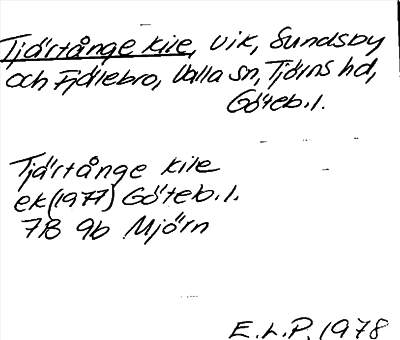 Tjärtånge kile, vik, Sundsby
och Fjälebro, Valla sn, Tjörns hd,
Göteb.l.
Tjärtånge kile
ek (1977) Göteb.l.
7B 9b Mjörn
E.L.P. 1978